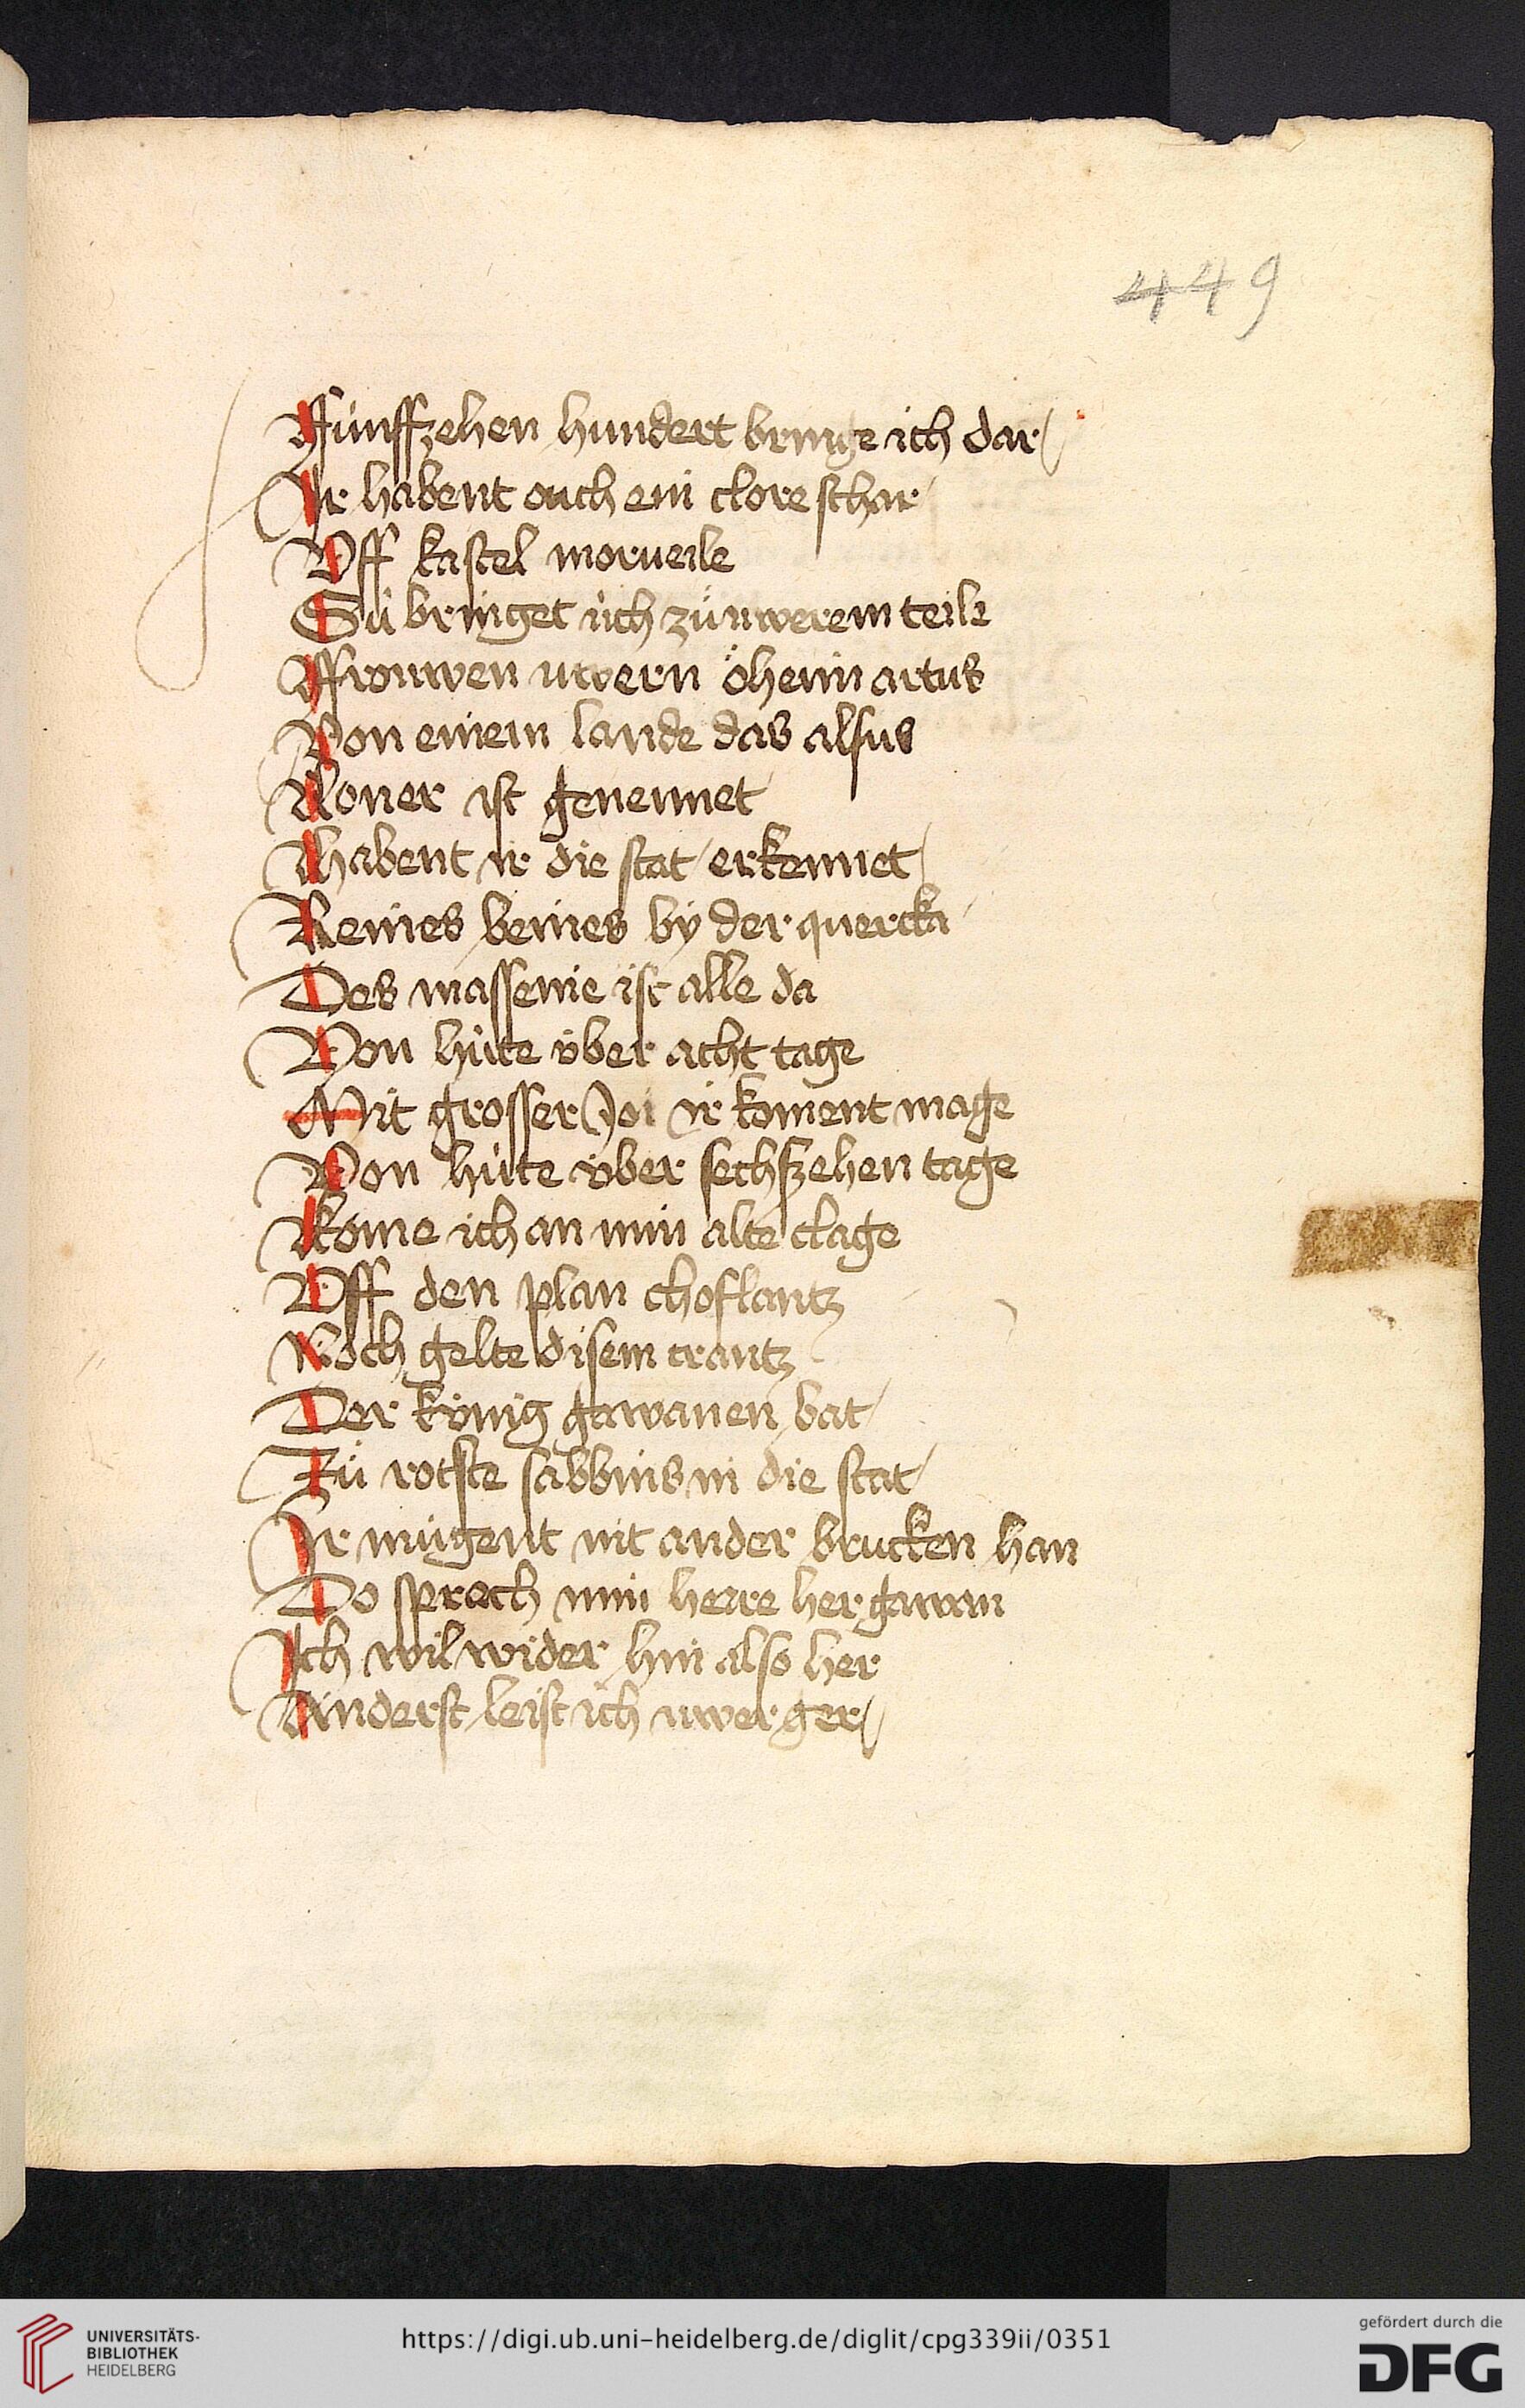 449
Fúnffzehen hundert bringe ich dar
Ir habent ouch ein clore schar
Vff kastel morveile
Sú bringet úch zú uwerem teile
Ffrouwen uwern öheim artus
Von einem lande das alsus
Loner ist genennet
Habent ir die stat erkennet
Reines beines by der quercka
Des massenie ist alle da
Von húte über acht tage
Mit grosser Joi ir koment mage
Von húte über sechszehen tage
Kome ich an min alte clage
Vff den plan choflantz
Noch gelte disem crantz
Der kúnig gawanen bat
Zú rotste sabbins in die stat
Ir mügent nit ander brucken han
Do sprach min herre her gawan
Ich wil wider hin also her
Anderst leist ich uwer ger
UNIVERSITÄTS-
BIBLIOTHEK
HEIDELBERG
https://digi.ub.uni-heidelberg.de/diglit/cpg339ii/0351
gefördert durch die
DFG